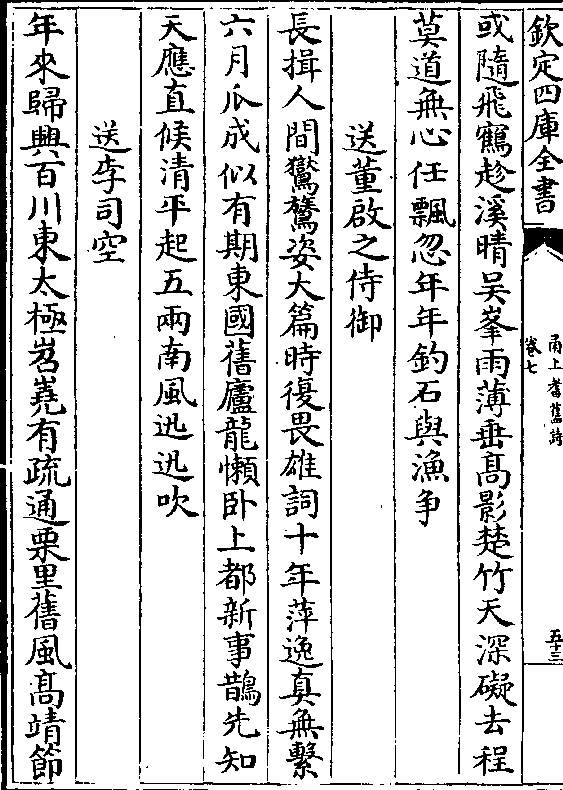 欽定四庫全書
甬上耆舊詩
卷七
五十三
或隨飛鶴趁溪晴吴峯雨薄垂髙影楚竹天深礙去程
莫道無心任飄忽年年釣石與漁争
送董啟之侍御
長揖人間鸞鵞姿大篇時復畏雄詞十年萍逸真無繫
六月瓜成似有期東國舊廬龍懶卧上都新事鵲先知
天應直候清平起五兩南風迅迅吹
送李司空
年來歸興百川東太極岧嶤有疏通栗里舊風髙靖節